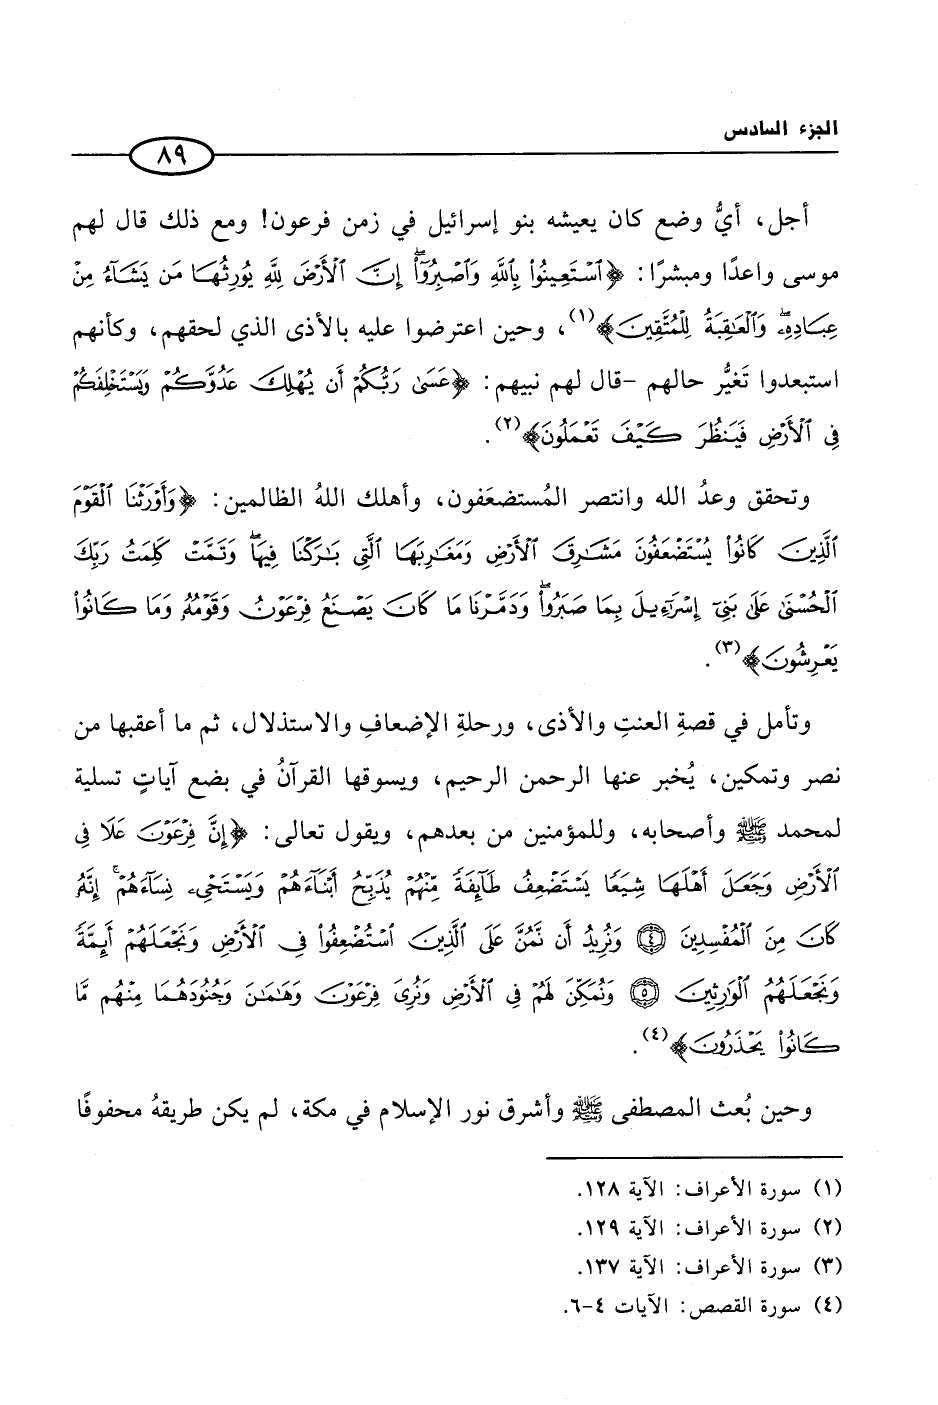 الجزء السادس
٨٩
أجل، أيُّ وضع كان يعيشه بنو إسرائيل في زمن فرعون! ومع ذلك قال لهم
موسى واعدًا ومبشرًا: ﴿ٱسْتَعِينُوا۟ بِٱللَّهِ وَٱصْبِرُوٓا۟ ۖ إِنَّ ٱلْأَرْضَ لِلَّهِ يُورِثُهَا مَن يَشَآءُ مِنْ
عِبَادِهِۦ ۖ وَٱلْعَٰقِبَةُ لِلْمُتَّقِينَ﴾(١)، وحين اعترضوا عليه بالأذى الذي لحقهم، وكأنهم
استبعدوا تَغيُّر حالهم -قال لهم نبيهم: ﴿عَسَىٰ رَبُّكُمْ أَن يُهْلِكَ عَدُوَّكُمْ وَيَسْتَخْلِفَكُمْ
فِى ٱلْأَرْضِ فَيَنظُرَ كَيْفَ تَعْمَلُونَ﴾(٢).
وتحقق وعدُ الله وانتصر المُستضعَفون، وأهلك اللهُ الظالمين: ﴿وَأَوْرَثْنَا ٱلْقَوْمَ
ٱلَّذِينَ كَانُوا۟ يُسْتَضْعَفُونَ مَشَٰرِقَ ٱلْأَرْضِ وَمَغَٰرِبَهَا ٱلَّتِى بَٰرَكْنَا فِيهَا ۖ وَتَمَّتْ كَلِمَتُ رَبِّكَ
ٱلْحُسْنَىٰ عَلَىٰ بَنِىٓ إِسْرَٰٓءِيلَ بِمَا صَبَرُوا۟ ۖ وَدَمَّرْنَا مَا كَانَ يَصْنَعُ فِرْعَوْنُ وَقَوْمُهُۥ وَمَا كَانُوا۟
يَعْرِشُونَ﴾(٣).
وتأمل في قصةِ العنتِ والأذى، ورحلةِ الإضعافِ والاستذلال، ثم ما أعقبها من
نصر وتمكين، يُخبر عنها الرحمن الرحيم، ويسوقها القرآنُ في بضع آياتٍ تسلية
لمحمد ﷺ وأصحابه، وللمؤمنين من بعدهم، ويقول تعالى: ﴿إِنَّ فِرْعَوْنَ عَلَا فِى
ٱلْأَرْضِ وَجَعَلَ أَهْلَهَا شِيَعًا يَسْتَضْعِفُ طَآئِفَةً مِّنْهُمْ يُذَبِّحُ أَبْنَآءَهُمْ وَيَسْتَحْىِۦ نِسَآءَهُمْ ۚ إِنَّهُۥ
كَانَ مِنَ ٱلْمُفْسِدِينَ ﴿٤﴾ وَنُرِيدُ أَن نَّمُنَّ عَلَى ٱلَّذِينَ ٱسْتُضْعِفُوا۟ فِى ٱلْأَرْضِ وَنَجْعَلَهُمْ أَئِمَّةً
وَنَجْعَلَهُمُ ٱلْوَٰرِثِينَ ﴿٥﴾ وَنُمَكِّنَ لَهُمْ فِى ٱلْأَرْضِ وَنُرِىَ فِرْعَوْنَ وَهَٰمَٰنَ وَجُنُودَهُمَا مِنْهُم مَّا
كَانُوا۟ يَحْذَرُونَ﴾(٤).
وحين بُعث المصطفى ﷺ وأشرق نور الإسلام في مكة، لم يكن طريقهُ محفوفًا
(١) سورة الأعراف: الآية ١٢٨.
(٢) سورة الأعراف: الآية ١٢٩.
(٣) سورة الأعراف: الآية ١٣٧.
(٤) سورة القصص: الآيات ٤-٦.